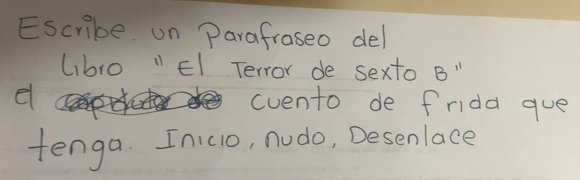 Escribe. un Parafraseo del
Libro "El Terror de sexto B"
el cuento de frida que
tenga. Inicio, nudo, Desenlace